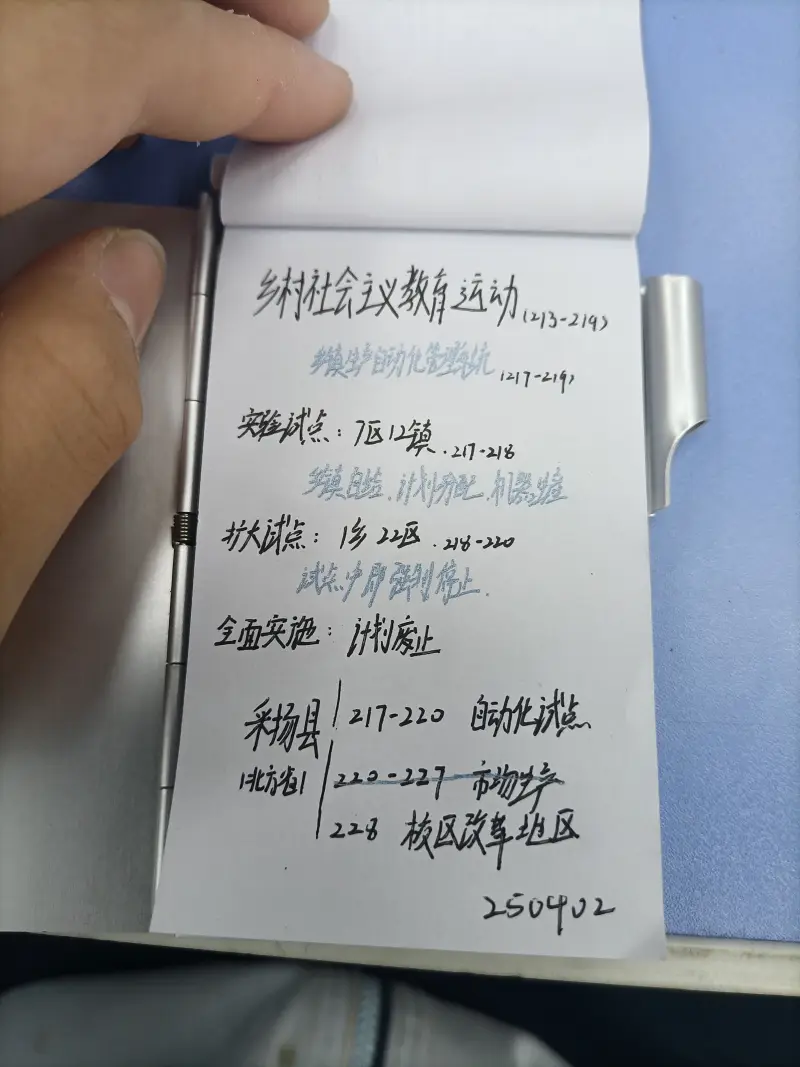 乡村社会主义教育运动(213-219)
乡镇生产自动化管理系统(217-219)
实验试点：7区12镇.217-218
乡镇自给.计划分配.机器生产
扩大试点：1乡22区.218-220
试点中即强制停止.
全面实施：计划废止
采扬县 217-220 自动化试点
(北方省) 220-227 市场生产
228 核区改革地区
250402